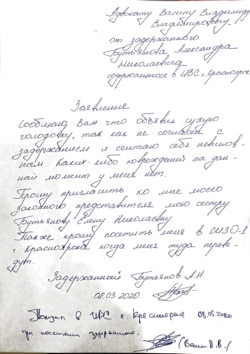 Адвокату Васину Владимиру
Владимировичу
от задержанного
Бутьянова Александра
Николаевича
содержащегося в ИВС г. Красноярск
Заявление
Сообщаю Вам что объявил сухую
голодовку, так как не согласен с
задержанием и считаю себя невинов-
ным каких-либо повреждений на дан-
ный момент у меня нет.
Прошу пригласить ко мне моего
законного представителя мою сестру
Бутьянову Елену Николаевну.
Также прошу посетить меня в СИЗО-1
г. Красноярска когда меня туда переве-
дут.
Задержанный Бутьянов А.Н
08.03.2020
в ИВС г. Красноярска 08.03.2020
при посещении задержанного.
(Васин В.В.)